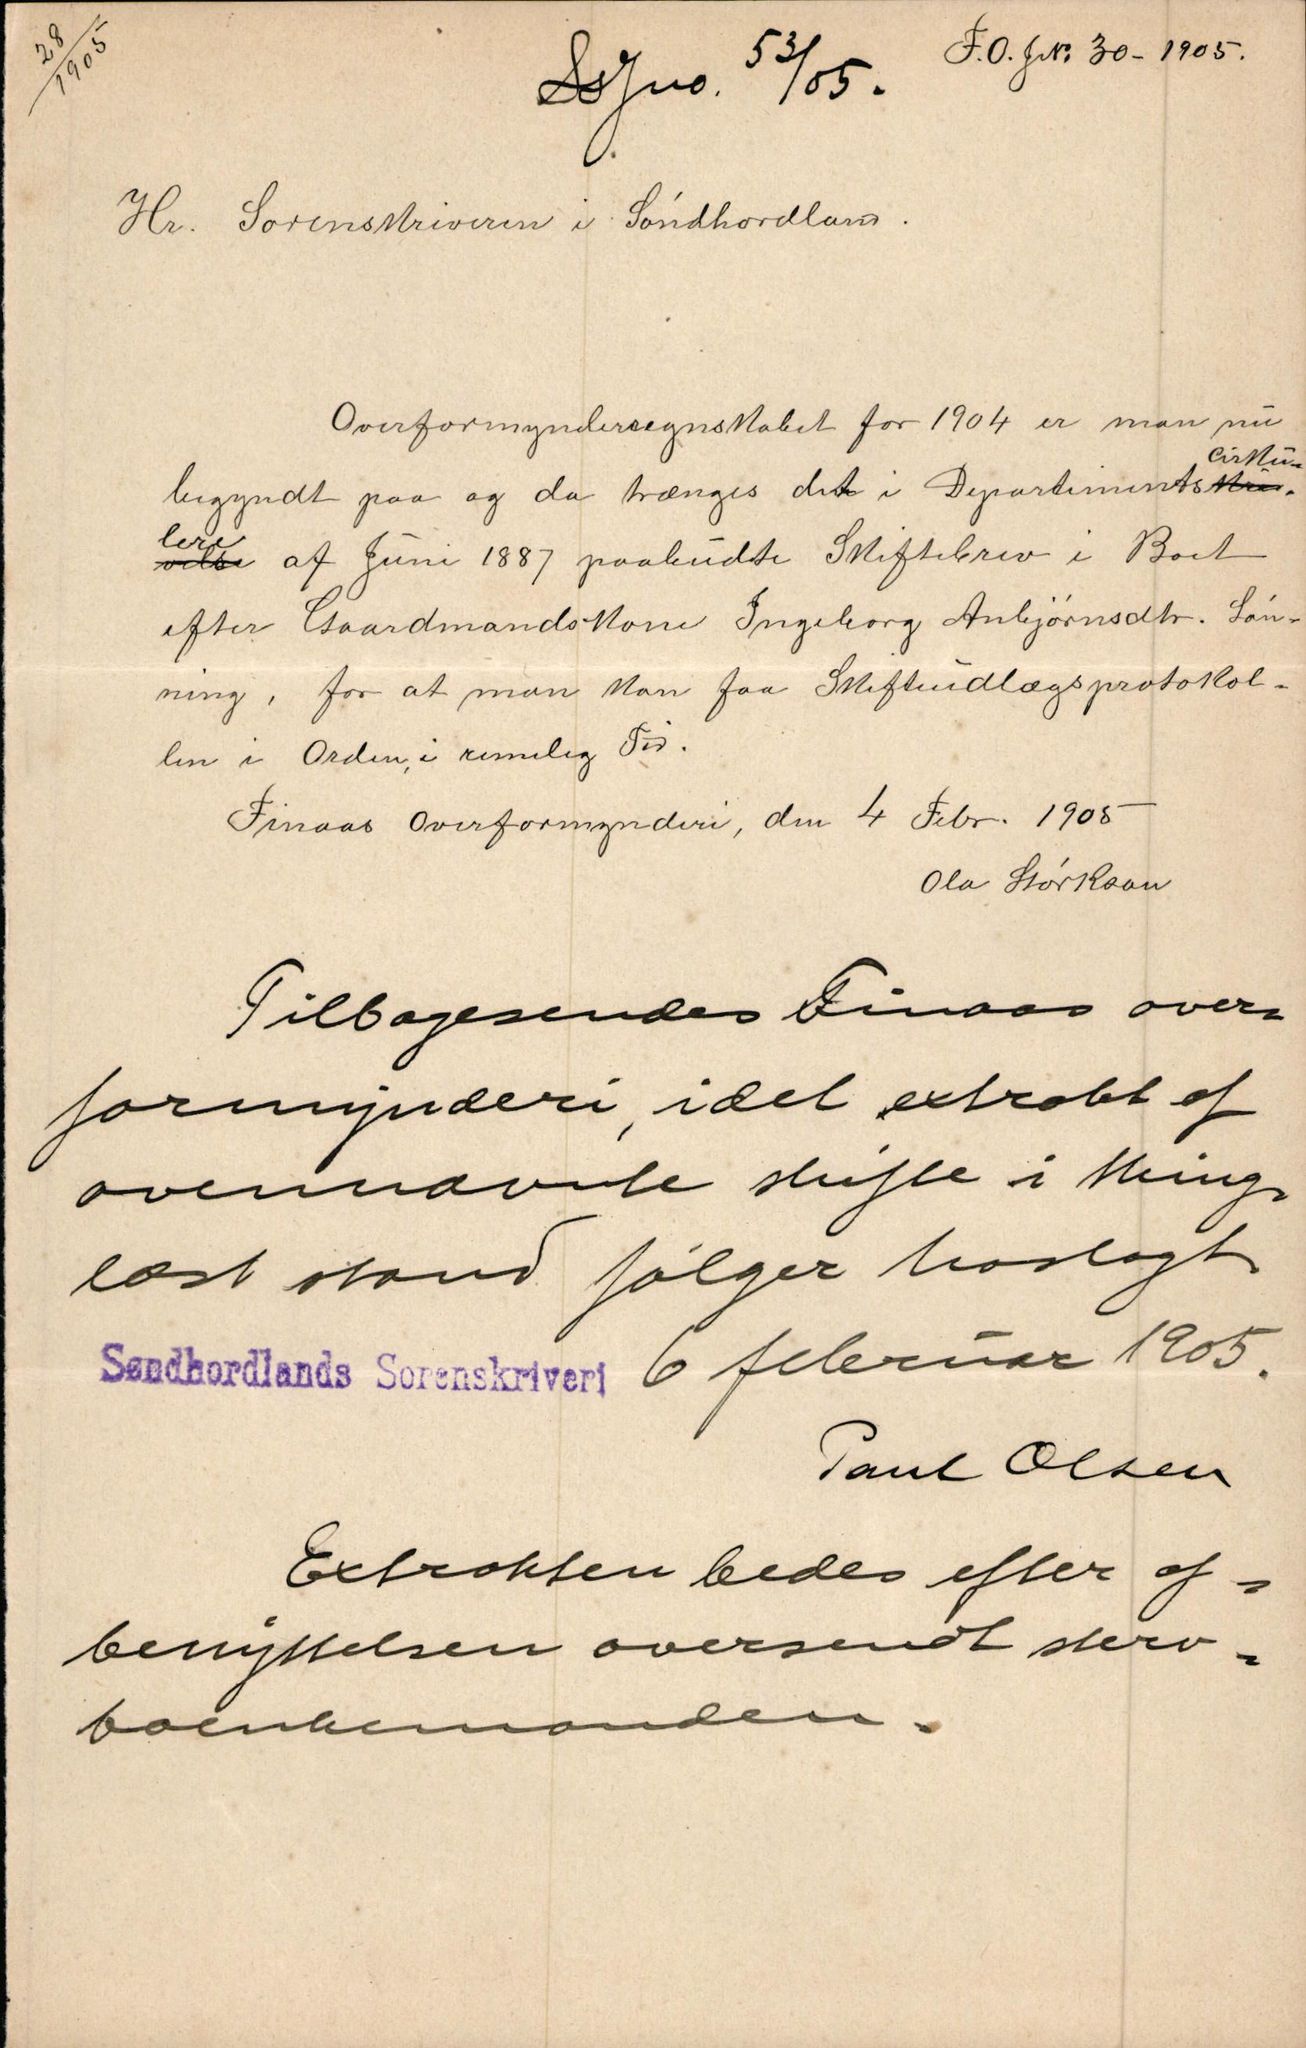 28/1905
Jno. 53/05.
F.O. JNo. 30 - 1905.
Hr. Sorenskriveren i Søndhordland.
Overformynderegnskabet for 1904 er man nu
begyndt paa og da trænges det i Departements cirku-
lere af Juni 1887 paabudte Skiftebrev i Boet
efter Gaardmandskone Ingeborg Anbjørnsdtr. Løn-
ning, for at man kan faa Skifteudlægsprotokol-
len i Orden, i rimelig Tid.
Finaas Overformynderi, den 4 Febr. 1905
Ola Størkson
Tilbagesendes Finaas over-
formynderi, idet extrakt af
ovennævnte skifte i thing-
læst stand følger hoslagt.
Søndhordlands Sorenskriveri 6 februar 1905.
Paul Olsen
Extrakten bedes efter af-
benyttelsen oversendt sterv-
boenkemanden.